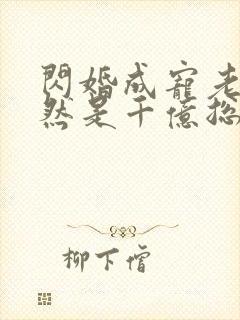 閃婚成寵老
然是千億總
柳下僧